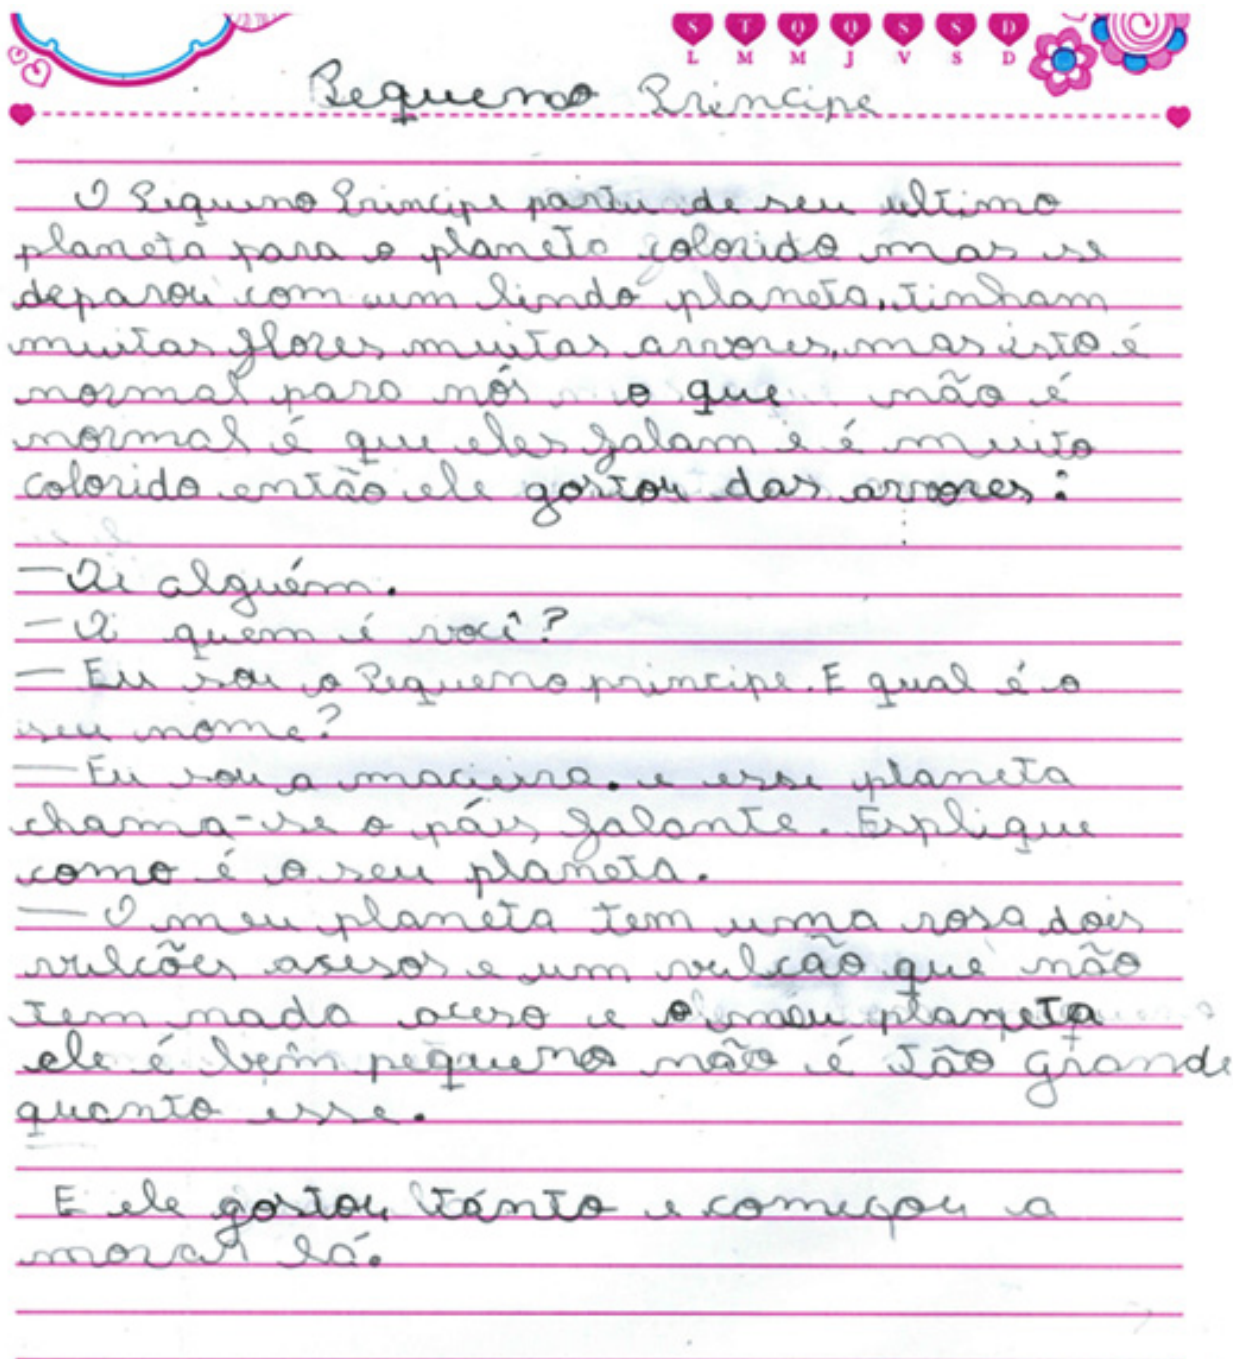 S T Q Q S S D
L M M J V S D
Pequeno Principe
O Piqueno Principe partiu de seu ultimo
planeta para o planeta colorido mas se
deparou com um lindo planeta, tinham
muitas flores muitas arvores, mas isto é
normal para nós o que não é
normal é que eles falam e é muito
colorido então ele gostou das arvores:
— Oi alguém.
— Oi quem é você?
— Eu sou o Pequeno principe. E qual é o
seu nome?
— Eu sou a macieira. e esse planeta
chama-se o páis falante. Esplique
como é o seu planeta.
— O meu planeta tem uma rosa dois
vulcões acesos e um vulcão que não
tem nada aceso e o meu planeta
ele é bem pequeno não é tão grande
quanto esse.
E ele gostou tánto e começou a
morar lá.